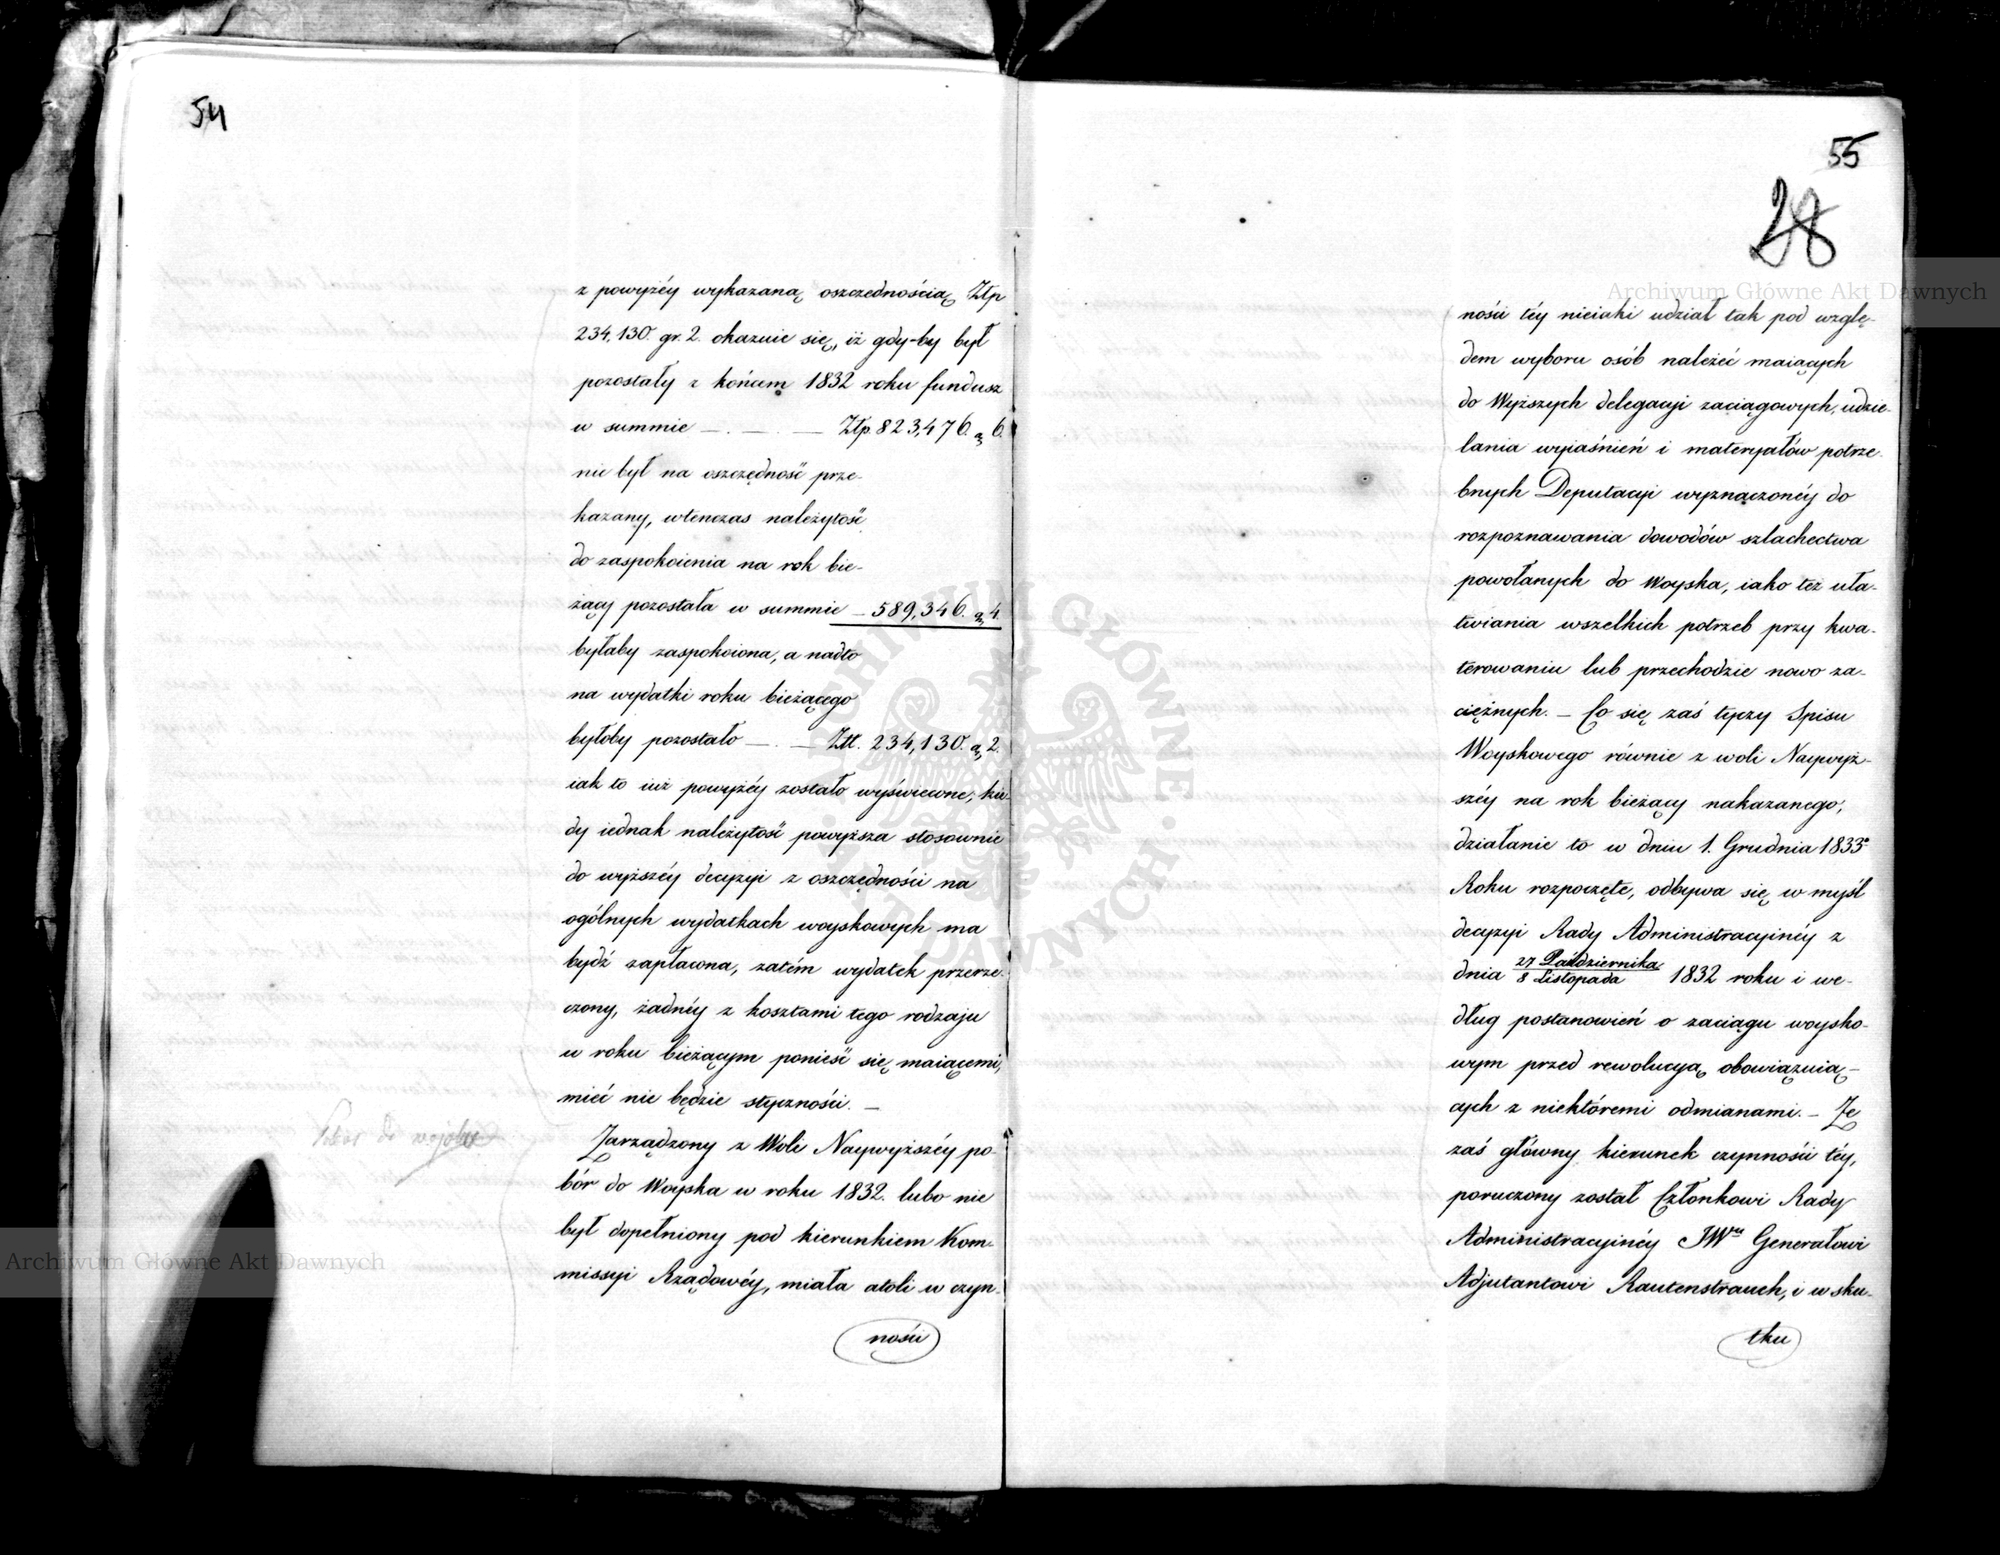 54
z powyżéy wykazaną oszczędnością Ztp
234,130. gr. 2. okazuie się, iż gdy-by był
pozostały z końcem 1832 roku fundusz
w summie — . — — Ztp. 823,476. g 6.
nie był na oszczędność prze-
kazany, wtenczas należytość
do zaspokoienia na rok bie-
żący pozostała w summie — 589,346. g 4.
byłaby zaspokoiona, a nadto
na wydatki roku bieżącego
byłoby pozostało — . — Ztt. 234,130. g 2.
iak to iuż powyżéy zostało wyświecone; kie-
dy iednak należytość powyższa stosownie
do wyższéy decyzyi z oszczędności na
ogólnych wydatkach woyskowych ma
bydź zapłacona, zatém wydatek przerze-
czony, żadnéy z kosztami tego rodzaju
w roku bieżącym ponieść się maiącemi,
mieć nie będzie styczności. —
Pobór do wojska
Zarządzony z Woli Naywyższéy po-
bór do Woyska w roku 1832. lubo nie
był dopełniony pod kierunkiem Kom-
missyi Rządowéy, miała atoli w czyn-
ności
55
28
ności téy nieiaki udział tak pod wzglę-
dem wyboru osób należeć maiących
do Wyższych delegacyi zaciągowych, udzie-
lania wyiaśnień i materyałów potrze-
bnych Deputacyi wyznaczonéy do
rozpoznawania dowodów szlachectwa
powołanych do Woyska, iako też uła-
twiania wszelkich potrzeb przy kwa-
terowaniu lub przechodzie nowo za-
ciężnych. — Co się zaś tyczy Spisu
Woyskowego równie z woli Naywyż-
széy na rok bieżący nakazanego,
działanie to w dniu 1. Grudnia 1833º
Roku rozpoczęte, odbywa się w myśl
decyzyi Rady Administracyinéy z
dnia 27 Października / 8 Listopada 1832 roku i we-
dług postanowień o zaciągu woysko-
wym przed rewolucyą obowiązuią-
cych z niektóremi odmianami. — Że
zaś główny kierunek czynności téy,
poruczony został Członkowi Rady
Administracyinéy JWmu Generałowi
Adjutantowi Rautenstrauch, i w sku-
tku
Archiwum Główne Akt Dawnych
Archiwum Główne Akt Dawnych
ARCHIWUM GŁÓWNE AKT DAWNYCH